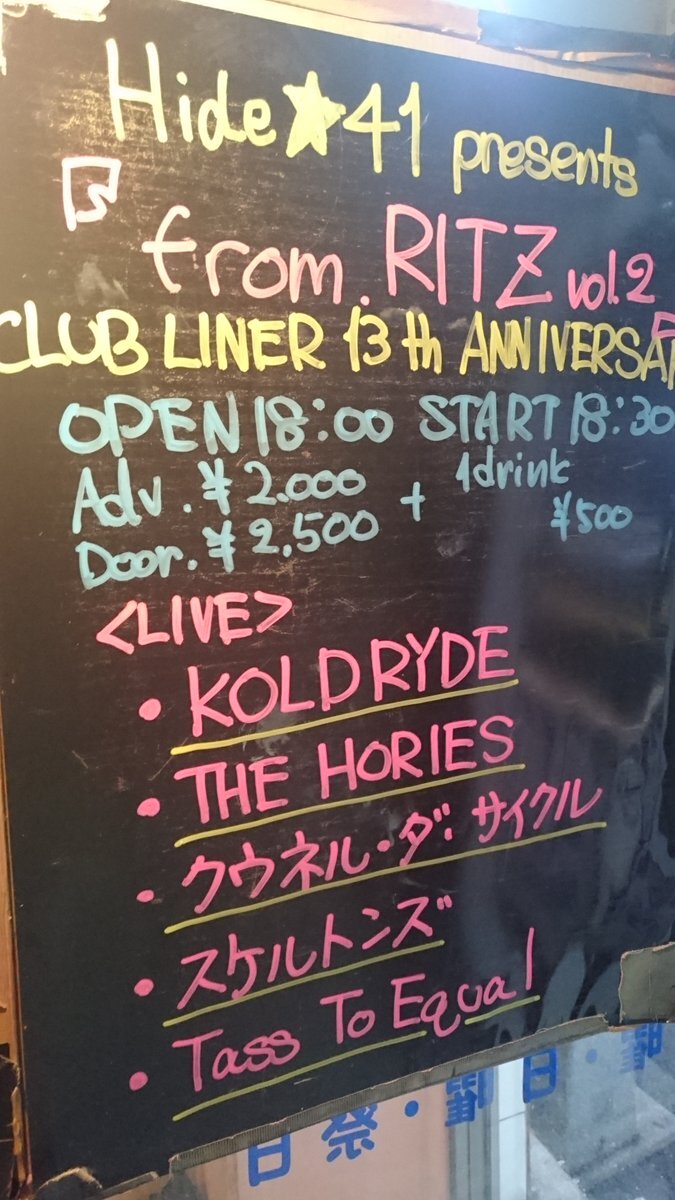 Hide★41 presents
『from. RITZ vol.2』
CLUB LINER 13th ANNIVERSA
OPEN 18:00 START 18:30
Adv. ¥2.000 + 1drink ¥500
Door. ¥2,500
<LIVE>
・KOLD RYDE
・THE HORIES
・クウネル・ダ・サイクル
・スケルトンズ
・Tass To Equal
日祭・曜日・曜